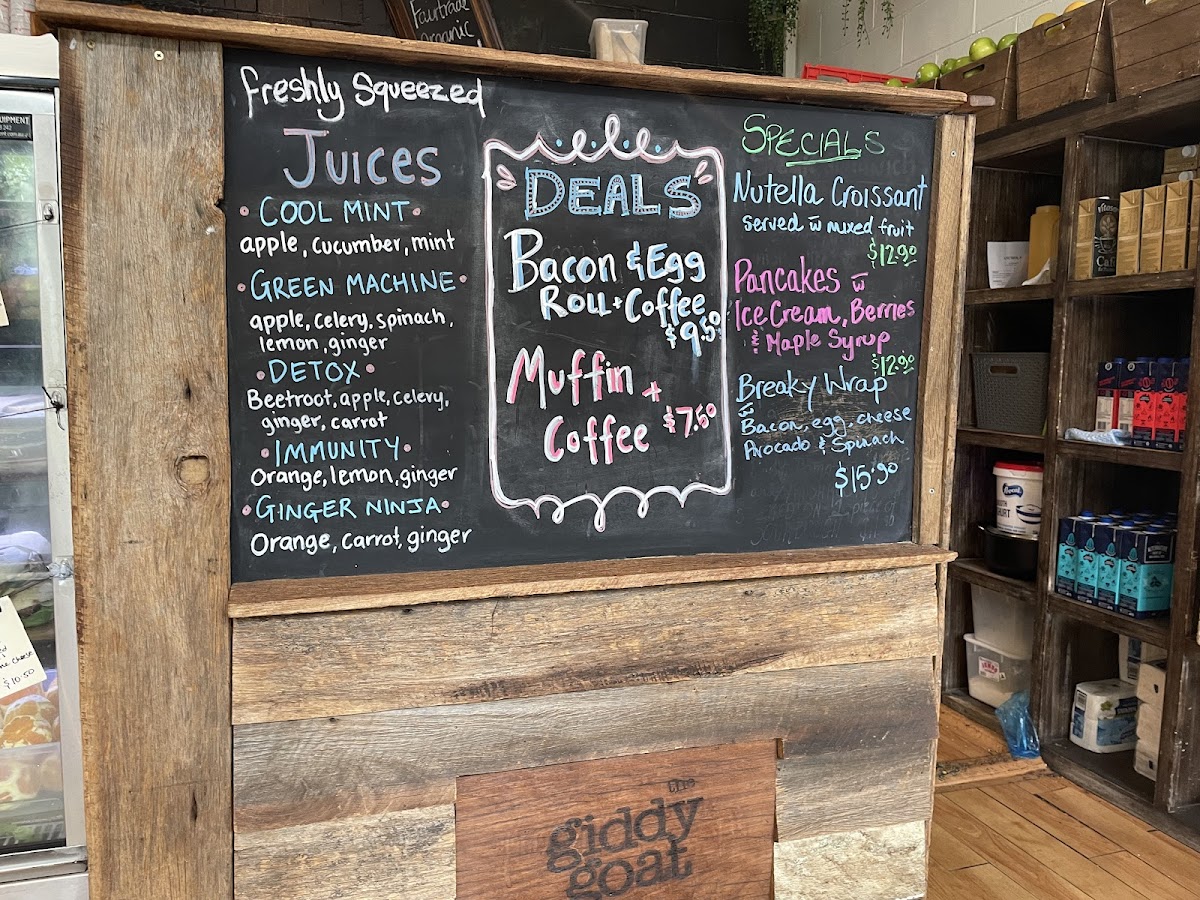 Fairtrade
Organic
Freshly Squeezed
Juices
COOL MINT
apple, cucumber, mint
GREEN MACHINE
apple, celery, spinach,
lemon, ginger
DETOX
Beetroot, apple, celery,
ginger, carrot
IMMUNITY
Orange, lemon, ginger
GINGER NINJA
Orange, carrot, ginger
DEALS
Bacon & Egg
Roll + Coffee
$9.50
Muffin +
Coffee $7.50
SPECIALS
Nutella Croissant
served w mixed fruit
$12.90
Pancakes w
Ice Cream, Berries
& Maple Syrup
$12.90
Breaky Wrap
w
Bacon, egg, cheese
Avocado & Spinach
$15.90
the
giddy
goat
EQUIPMENT
$10.50